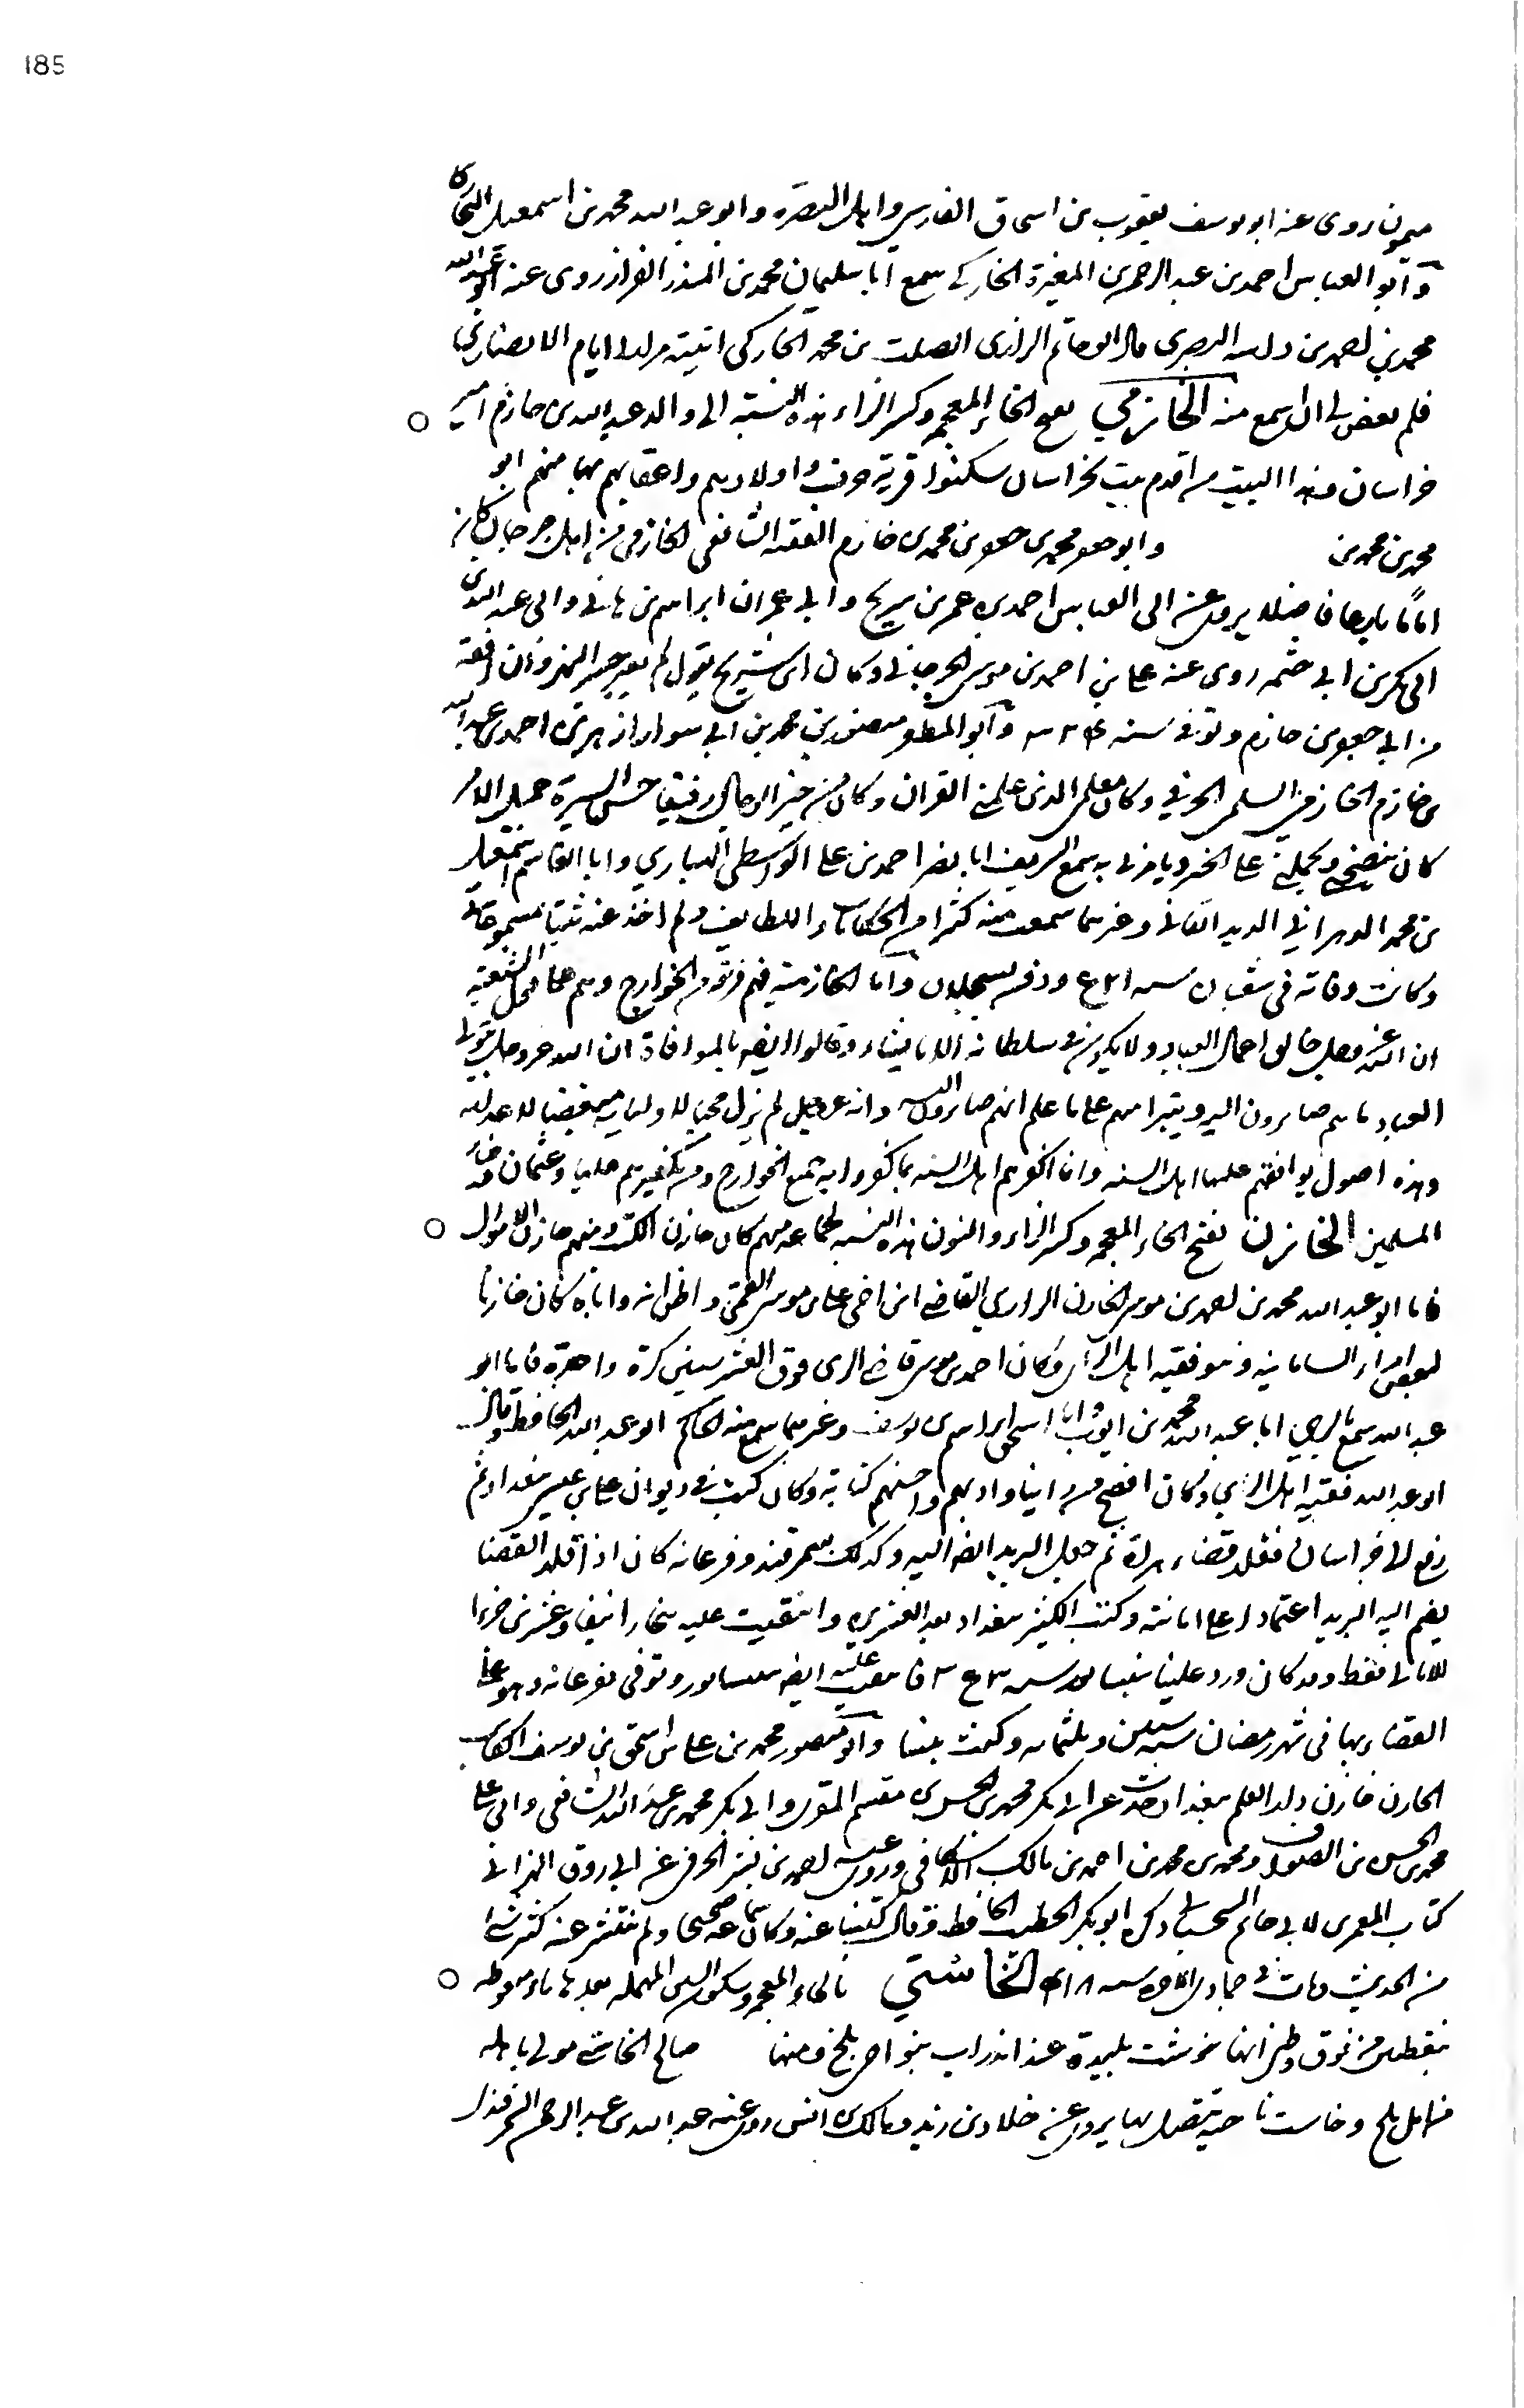 185
ميمون روى عنه ابو يوسف يعقوب بن اسحاق الفارسي واهل البصرة وابو عبد الله محمد بن اسمعيل الخاركي
وابو العباس احمد بن عبد الرحمن بن المغيرة الخاركي سمع ابا سليمان محمد بن المنذر القزاز روى عنه ابو عبد الله
محمد بن احمد بن البصرى قال ابو حاتم الرازى الصلت بن محمد الخاركي اتيته ايام الانصارى
فلم يقض لي ان اسمع منه الخازمي بفتح الخاء المعجمة وكسر الزاء هذه النسبة الى والد عبد الله بن خازم امير
خراسان وهذا البيت من اقدم بيت بخراسان سكنوا قرية واولادهم واعقابهم بها منهم ابو
محمد بن محمد بن وابو جعفر محمد بن جعفر بن محمد بن خازم الفقيه الشافعي الخازمي من اهل جرجان كان
اماما بارعا فاضلا يروى عن ابي العباس احمد بن عمر بن سريج وابي عمران ابراهيم بن هاني وابي عبد الله بن
ابي بكر بن ابي خيثمة روى عنه علي بن احمد بن موسى الجرجاني وكان ابن سريج يقول لم يعبر جسر النهروان افقه
من ابي جعفر بن خازم وتوفي سنة ٣٢٤ وابو المظفر منصور بن محمد بن ابي احمد بن عبد الله
بن خازم الخازمي السلمي وكان معلمي الذى علمني القران وكان من خير الرجال رفيقا حسن السيرة جميل الامر
كان ينصحني ويحملني على الخير ويامرني به سمع الشريف ابا نصر احمد بن علي وابا القاسم اسمعيل
بن محمد وغيرهما سمعت منه كثيرا من الحكايات واللطايف ولم اخذ عنه شيئا من مسموعاته
وكانت وفاته في شعبان سنة واما الخازمية فهم فرقة من الخوارج وهم على قول الشعيبية
ان الله عز وجل خالق اعمال العباد ولا يكون في سلطانه الا ما يشاء وقالوا ايضا بالموافاة ان الله عز وجل يتولى
العباد على ما هم صايرون اليه ويتبرا منهم على ما علم انهم صايرون اليه وانه عز وجل لم يزل محبا لاوليايه مبغضا لاعدايه
وهذه اصول يوافقهم عليها اهل السنة وانما اكفرهم اهل السنة بما كفروا به جميع الخوارج ومن تكفيرهم عليا وعثمان وخيار
المسلمين الخازن بفتح الخاء المعجمة وكسر الزاء والنون هذه النسبة لجماعة منهم كان خازن الكتب ومنهم خازن الاموال
فاما ابو عبد الله محمد بن احمد بن موسى الخازن الرازي القاضي ابن اخي علي بن موسى القمي واظن انه واباه كان خازنا
لبعض امراء السامانية وهو فقيه اهل الراى وكان احمد بن موسى قاضي الرى فوق العشر سنين كرة واحدة فاما ابو
عبد الله سمع بالري ابا عبد الله محمد بن ايوب وابا اسحق ابراهيم بن يوسف وغيرهما سمع منه الحاكم ابو عبد الله الحافظ وقال
ابو عبد الله فقيه اهل الراي وكان افصح من راينا وادبهم واحسنهم كتابة وكان كتب في ديوان علي بن عيسى ببغداد ثم
رفع الى خراسان فقلد قضاء هراة ثم جعل البريد ايضا اليه وكذلك بسمرقند وفرغانة كان اذا قلد القضا
يضم اليه البريد اعتمادا على امانته وكتب الكثير ببغداد بعد العشرين وانتقيت عليه ببخارا نيفا وعشرين جزءا
للاما لي فقط وقد كان ورد علينا نيسابور سنة فانتقيت عليه ايضا بنيسابور وتوفي بفرغانة وهو على
القضاء بها في شهر رمضان سنة ستين وثلثمايه وابو منصور محمد بن علي بن اسحق بن يوسف الكاتب
الخازن خازن دار العلم ببغداد حدث عن ابي بكر محمد بن الحسن بن مقسم المقرى وابي بكر محمد بن عبد الله الشافعي وابي علي
محمد بن الحسن بن الصواف ومحمد بن محمد بن احمد بن مالك الاسكافي وروى عن احمد بن بشر الخرقي عن ابي روق الهزاني
كتاب المعمرين لابي حاتم السجستاني ذكره ابو بكر الخطيب الحافظ وقال كتبنا عنه وكان سماعه صحيحا ولم ينتشر عنه كثير شيء
من الحديث ومات في جمادى الاخرة سنة ٤١٨ الخاستي بالخاء المعجمة وسكون السين المهملة بعدها تاء منقوطة
بنقطتين من فوق وظني انها خوست بليدة عند اندراب بنواحي بلخ ومنها صالح الخاستي مولى باهلة
من اهل بلخ وخاست ناحية متصلة بها يروى عن خلاد بن زيد ومالك بن انس روى عنه عبد الله بن عبد الرحمن السمرقندي